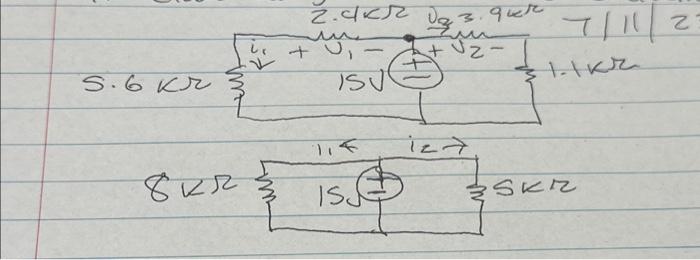 2.4kΩ i2 3.9kΩ 7/11/2
i1 + V1 - + V2 -
5.6KΩ 15V 1.1kΩ
i1 ← i2 →
8KΩ 15V 5KΩ